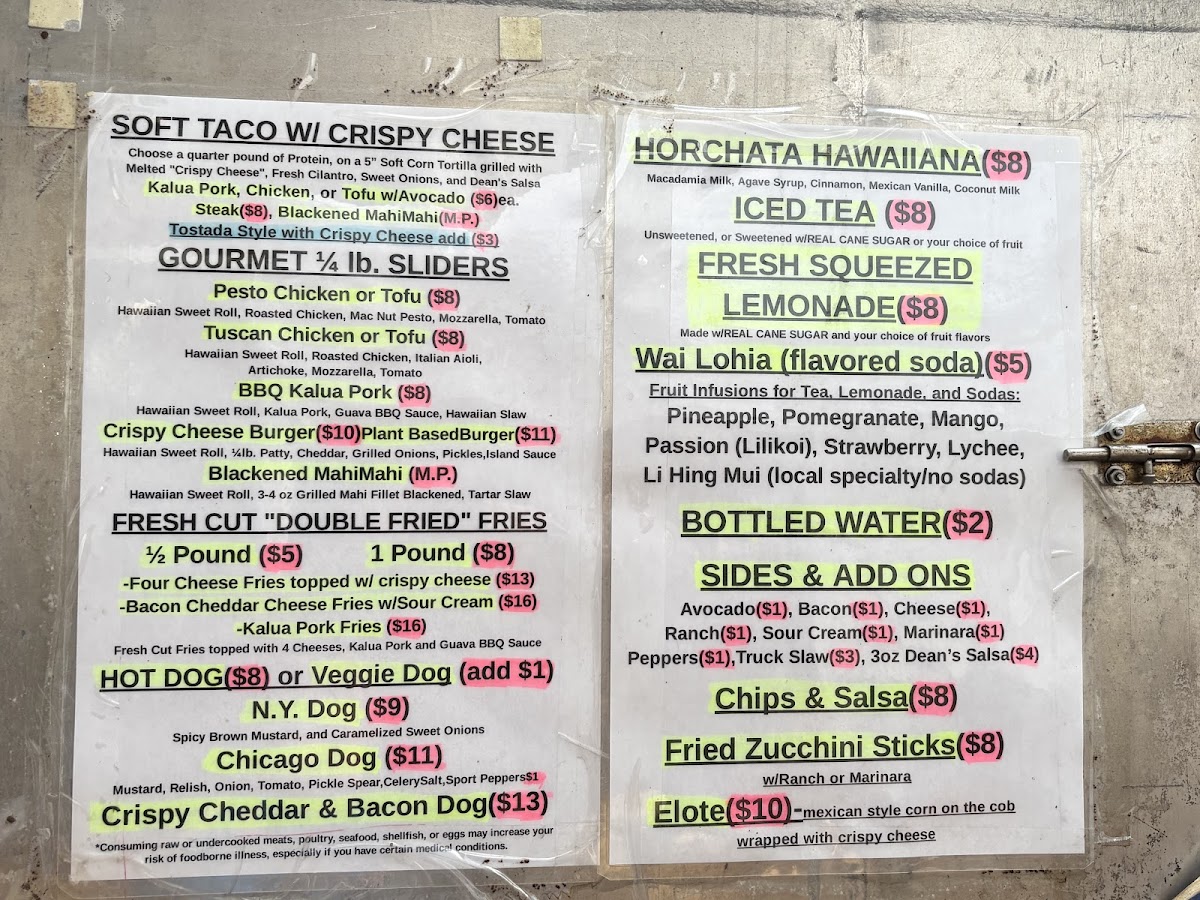 SOFT TACO W/ CRISPY CHEESE
Choose a quarter pound of Protein, on a 5" Soft Corn Tortilla grilled with
Melted "Crispy Cheese", Fresh Cilantro, Sweet Onions, and Dean's Salsa
Kalua Pork, Chicken, or Tofu w/Avocado ($6)ea.
Steak($8), Blackened MahiMahi(M.P.)
Tostada Style with Crispy Cheese add ($3)
GOURMET ¼ lb. SLIDERS
Pesto Chicken or Tofu ($8)
Hawaiian Sweet Roll, Roasted Chicken, Mac Nut Pesto, Mozzarella, Tomato
Tuscan Chicken or Tofu ($8)
Hawaiian Sweet Roll, Roasted Chicken, Italian Aioli,
Artichoke, Mozzarella, Tomato
BBQ Kalua Pork ($8)
Hawaiian Sweet Roll, Kalua Pork, Guava BBQ Sauce, Hawaiian Slaw
Crispy Cheese Burger($10)Plant BasedBurger($11)
Hawaiian Sweet Roll, ¼lb. Patty, Cheddar, Grilled Onions, Pickles,Island Sauce
Blackened MahiMahi (M.P.)
Hawaiian Sweet Roll, 3-4 oz Grilled Mahi Fillet Blackened, Tartar Slaw
FRESH CUT "DOUBLE FRIED" FRIES
½ Pound ($5) 1 Pound ($8)
-Four Cheese Fries topped w/ crispy cheese ($13)
-Bacon Cheddar Cheese Fries w/Sour Cream ($16)
-Kalua Pork Fries ($16)
Fresh Cut Fries topped with 4 Cheeses, Kalua Pork and Guava BBQ Sauce
HOT DOG($8) or Veggie Dog (add $1)
N.Y. Dog ($9)
Spicy Brown Mustard, and Caramelized Sweet Onions
Chicago Dog ($11)
Mustard, Relish, Onion, Tomato, Pickle Spear,CelerySalt,Sport Peppers$1
Crispy Cheddar & Bacon Dog($13)
*Consuming raw or undercooked meats, poultry, seafood, shellfish, or eggs may increase your
risk of foodborne illness, especially if you have certain medical conditions.
HORCHATA HAWAIIANA($8)
Macadamia Milk, Agave Syrup, Cinnamon, Mexican Vanilla, Coconut Milk
ICED TEA ($8)
Unsweetened, or Sweetened w/REAL CANE SUGAR or your choice of fruit
FRESH SQUEEZED
LEMONADE($8)
Made w/REAL CANE SUGAR and your choice of fruit flavors
Wai Lohia (flavored soda)($5)
Fruit Infusions for Tea, Lemonade, and Sodas:
Pineapple, Pomegranate, Mango,
Passion (Lilikoi), Strawberry, Lychee,
Li Hing Mui (local specialty/no sodas)
BOTTLED WATER($2)
SIDES & ADD ONS
Avocado($1), Bacon($1), Cheese($1),
Ranch($1), Sour Cream($1), Marinara($1)
Peppers($1),Truck Slaw($3), 3oz Dean's Salsa($4)
Chips & Salsa($8)
Fried Zucchini Sticks($8)
w/Ranch or Marinara
Elote($10)-mexican style corn on the cob
wrapped with crispy cheese